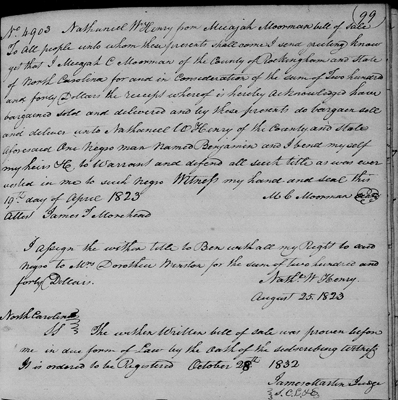 99
No 4903 Nathaniel W Henry from Micajah Moorman bill of sale
To all people unto whom these presents shall come I send greeting know
yet that I Micajah C Moorman of the County of Rockingham and State
of North Carolina for and in Consideration of the sum of Two hundred
and forty Dollars the receipt whereof is hereby acknowledged have
bargained sold and delivered and by these presents do bargain sell
and deliver unto Nathaniel W Henry of the County and State
aforesaid One negro man Named Benjamin and I bend myself
my heirs &c to Warrant and defend all such title as was ever
vested in me to such Negro Witness my hand and seal this
19th day of April 1823
M C Moorman
Attest James T Morehead
I assign the within title to Ben with all my Right to and
negro to Mrs Dorothea Winston for the sum of two hundred and
forty Dollars.
Nathl W Henry.
August 25. 1823
North Carolina
The within Written bill of sale was proven before
me in due form of Law by the oath of the subscribing Witness
It is ordered to be Registered October 28th 1832
James Martin Judge